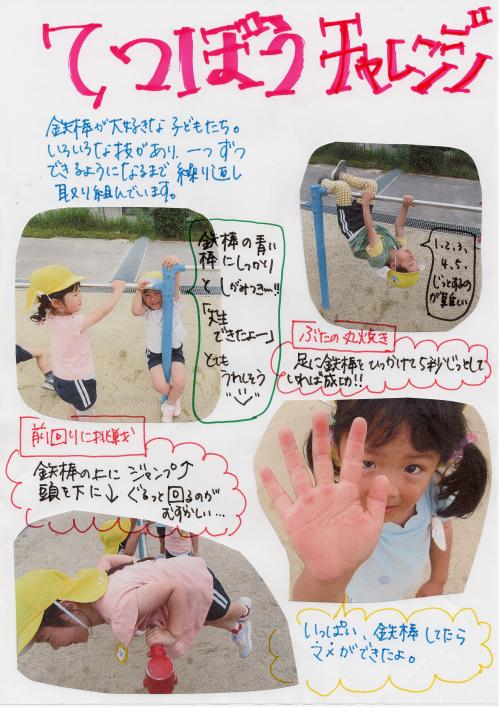 てつぼうチャレンジ
鉄棒が大好きな子どもたち。
いろいろな技があり、一つずつ
できるようになるまで繰り返し
取り組んでいます。
鉄棒の青い
棒にしっかり
としがみつき…!!
「先生
できたよー」
とても
うれしそう
1、2、3、
4、5、
じっとするの
が難しい
ぶたの丸焼き
足に鉄棒をひっかけて5秒じっとして
いれば成功!!
前回りに挑戦
鉄棒の上にジャンプ↑
頭を下に↓ぐるっと回るのが
むずかしい…
いっぱい、鉄棒してたら
マメができたよ。